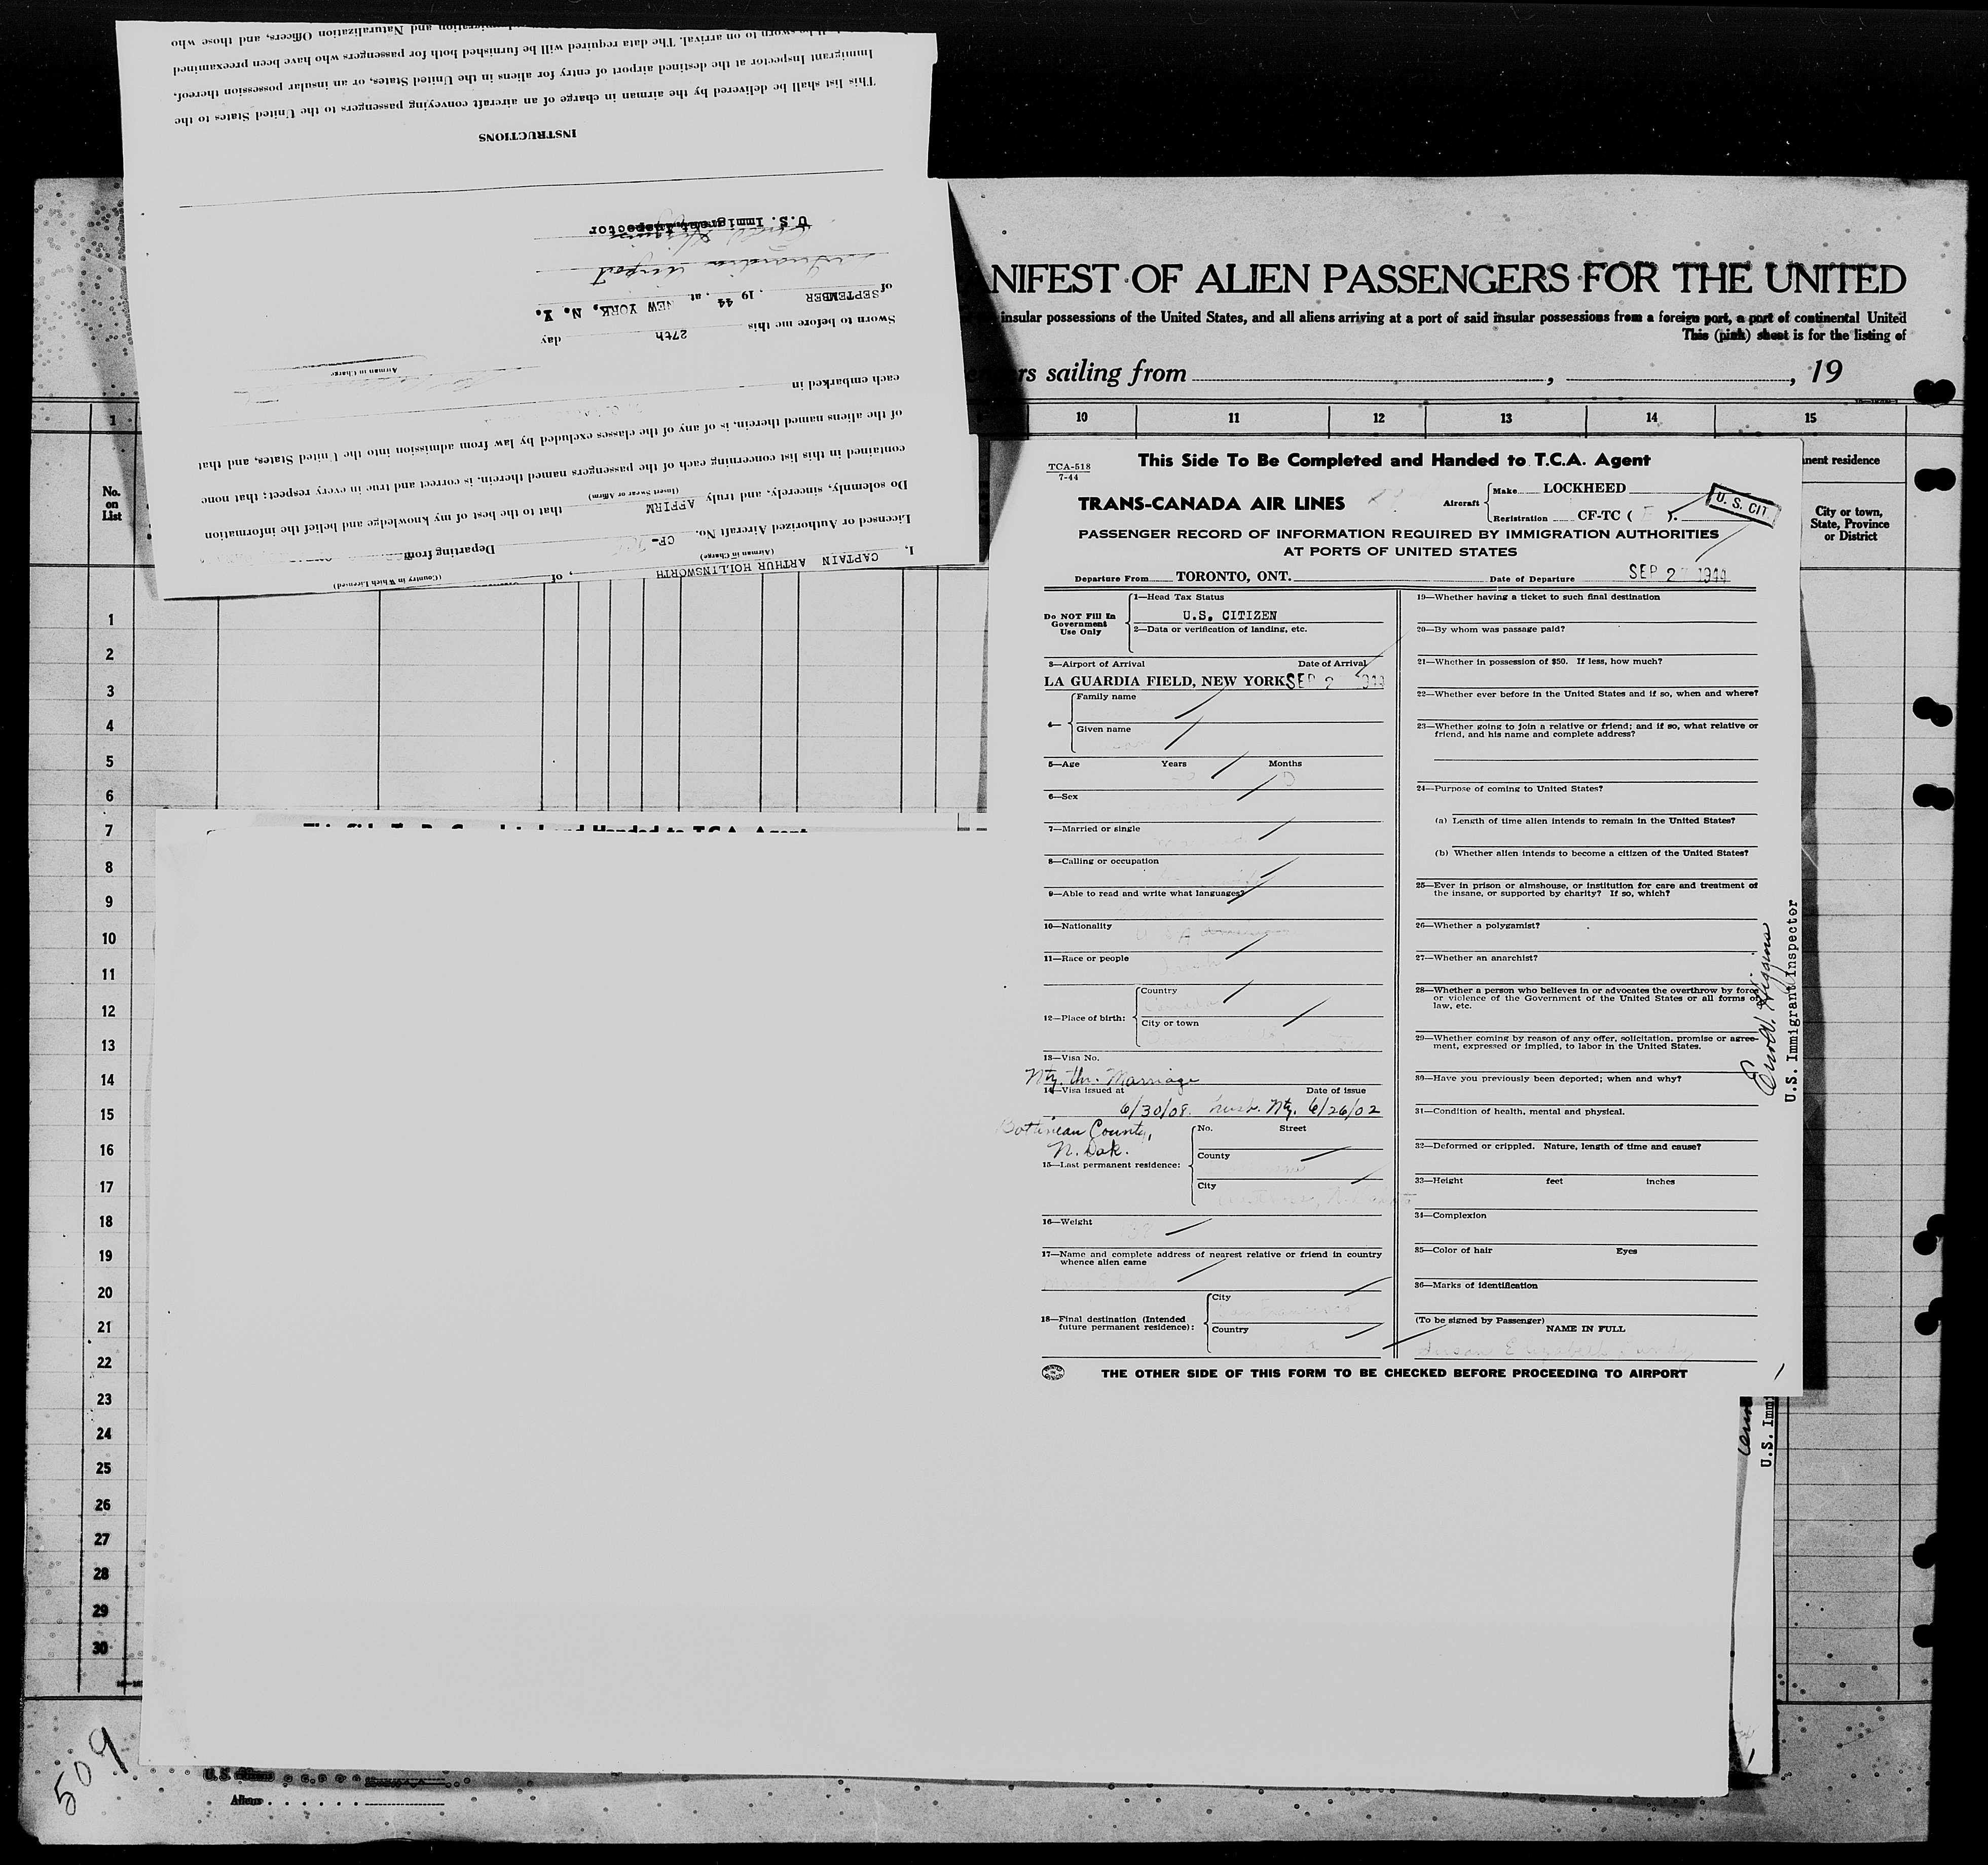 INSTRUCTIONS
This list shall be delivered by the airman in charge of an aircraft conveying passengers to the United States to the
Immigrant Inspector at the destined airport of entry for aliens in the United States, or an insular possession thereof,
sworn to on arrival. The data required will be furnished both for passengers who have been preexamined
Immigration and Naturalization Officers, and those who
I, CAPTAIN ARTHUR HOLLINSWORTH, of
(Airman in Charge) (Country in Which Licensed)
Licensed or Authorized Aircraft No. CF- Departing from
Do solemnly, sincerely, and truly AFFIRM that to the best of my knowledge and belief the information
(Insert Swear or Affirm)
contained in this list concerning each of the passengers named therein, is correct and true in every respect; that none
of the aliens named therein, is of any of the classes excluded by law from admission into the United States, and that
each embarked in
Airman in Charge
Sworn to before me this 27th day
of SEPTEMBER, 19 44, at NEW YORK, N. Y.
Airport
U.S. Immigrant Inspector
NIFEST OF ALIEN PASSENGERS FOR THE UNITED
insular possessions of the United States, and all aliens arriving at a port of said insular possessions from a foreign port, a port of continental United
This (pink) sheet is for the listing of
rs sailing from , , 19
1 10 11 12 13 14 15
No. on List
nent residence
City or town, State, Province or District
1
2
3
4
5
6
7
8
9
10
11
12
13
14
15
16
17
18
19
20
21
22
23
24
25
26
27
28
29
30
This Side To Be Completed and Handed to T.C.A. Agent
TCA-518
7-44
This Side To Be Completed and Handed to T.C.A. Agent
TRANS-CANADA AIR LINES
Aircraft
Make LOCKHEED
Registration CF-TC ( F ).
U. S. CIT.
PASSENGER RECORD OF INFORMATION REQUIRED BY IMMIGRATION AUTHORITIES
AT PORTS OF UNITED STATES
Departure From TORONTO, ONT. Date of Departure SEP 2 1944
Do NOT Fill In
Government
Use Only
1—Head Tax Status
U.S. CITIZEN
2—Data or verification of landing, etc.
3—Airport of Arrival Date of Arrival
LA GUARDIA FIELD, NEW YORK SEP 2 1944
4—
Family name
Given name
5—Age Years Months
6—Sex
7—Married or single
8—Calling or occupation
9—Able to read and write what languages?
10—Nationality U S A
11—Race or people
12—Place of birth:
Country
Canada
City or town
13—Visa No.
Ntz. thr. Marriage
14—Visa issued at Date of issue
6/30/08. husb. Ntz. 6/26/02
Bottineau County,
N. Dak.
15—Last permanent residence:
No. Street
County
City
16—Weight
17—Name and complete address of nearest relative or friend in country
whence alien came
18—Final destination (Intended
future permanent residence):
City
San Francisco
Country
19—Whether having a ticket to such final destination
20—By whom was passage paid?
21—Whether in possession of $50. If less, how much?
22—Whether ever before in the United States and if so, when and where?
23—Whether going to join a relative or friend; and if so, what relative or
friend, and his name and complete address?
24—Purpose of coming to United States?
(a) Length of time alien intends to remain in the United States?
(b) Whether alien intends to become a citizen of the United States?
25—Ever in prison or almshouse, or institution for care and treatment of
the insane, or supported by charity? If so, which?
26—Whether a polygamist?
27—Whether an anarchist?
28—Whether a person who believes in or advocates the overthrow by force
or violence of the Government of the United States or all forms of
law, etc.
29—Whether coming by reason of any offer, solicitation, promise or agree-
ment, expressed or implied, to labor in the United States.
30—Have you previously been deported; when and why?
31—Condition of health, mental and physical.
32—Deformed or crippled. Nature, length of time and cause?
33—Height feet inches
34—Complexion
35—Color of hair Eyes
36—Marks of identification
(To be signed by Passenger)
NAME IN FULL
Susan Elizabeth
THE OTHER SIDE OF THIS FORM TO BE CHECKED BEFORE PROCEEDING TO AIRPORT
U.S. Immigrant Inspector
U.S. Immi
U. S. citizens
Aliens
509